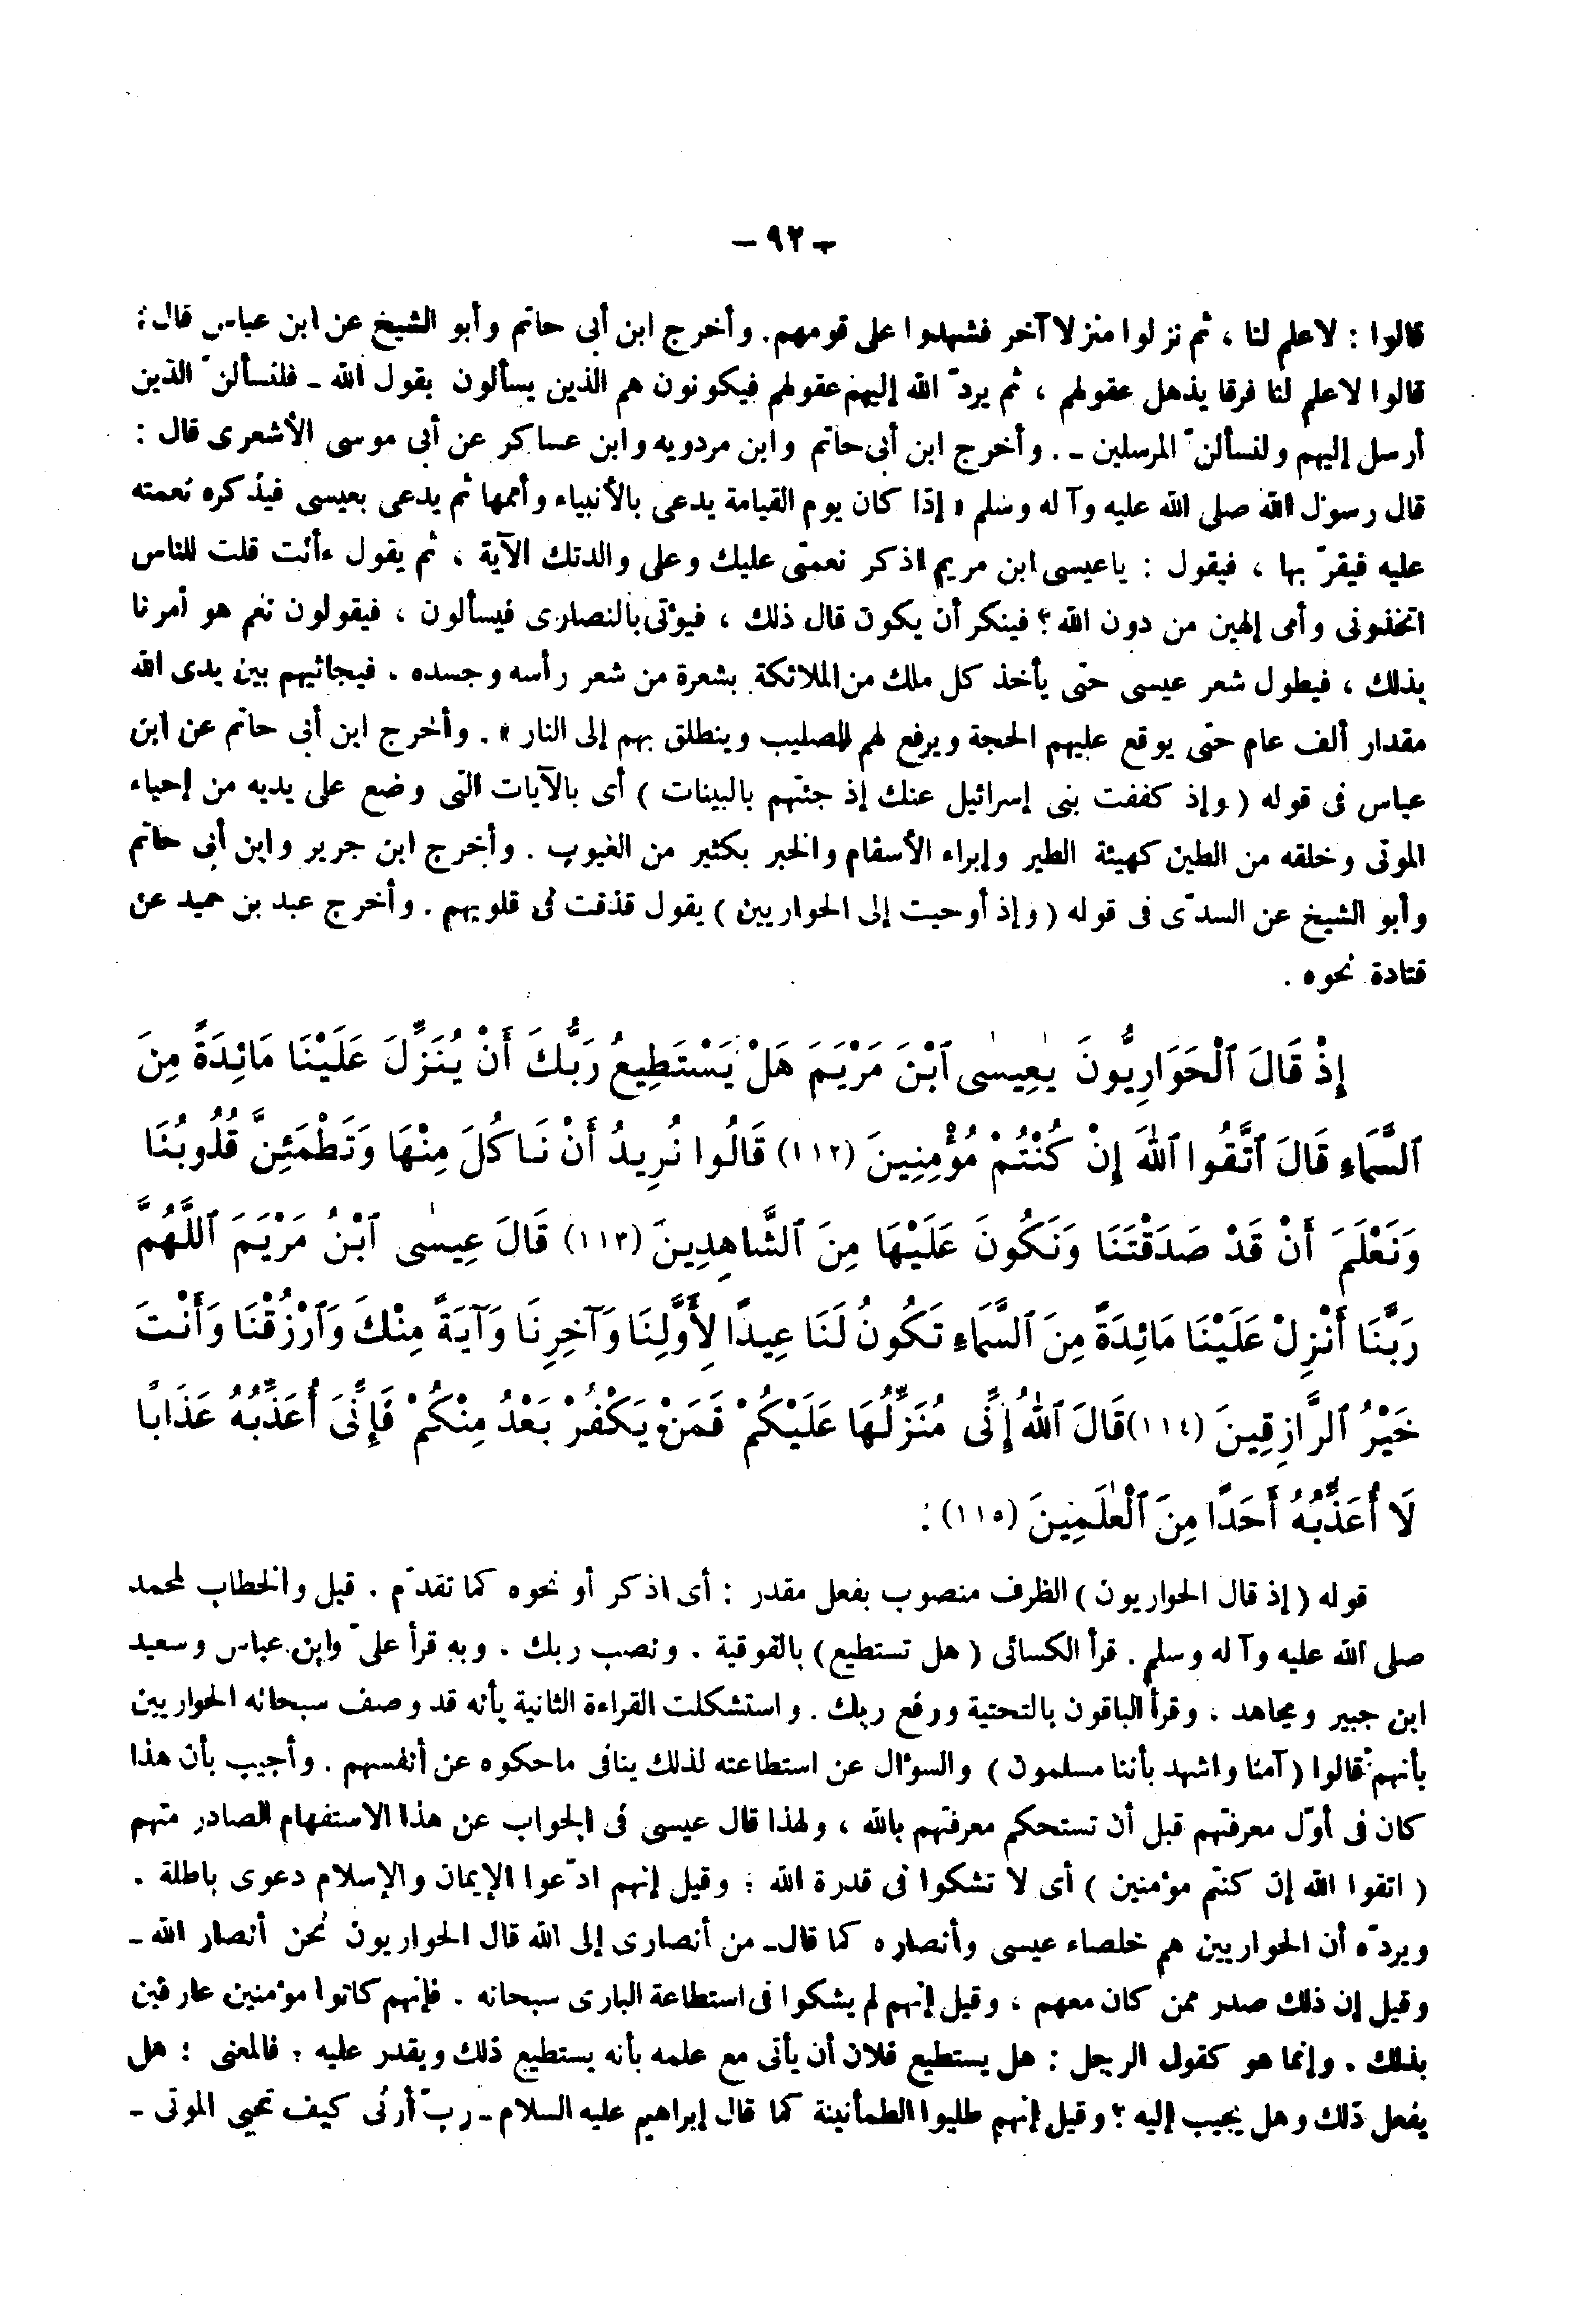 — ٩٢ —
قالوا : لاعلم لنا ، ثم نزلوا منزلا آخر فشهدوا على قومهم . وأخرج ابن أبى حاتم وأبو الشيخ عن ابن عباس قال :
قالوا لاعلم لنا فرقا يذهل عقولهم ، ثم يردّ الله إليهم عقولهم فيكونون هم الذين يسألون بقول الله ـ فلنسألنّ الذين
أرسل إليهم ولنسألنّ المرسلين ـ . وأخرج ابن أبى حاتم وابن مردويه وابن عساكر عن أبى موسى الأشعرى قال :
قال رسول الله صلى الله عليه وآله وسلم « إذا كان يوم القيامة يدعى بالأنبياء وأممها ثم يدعى بعيسى فيذكره نعمته
عليه فيقرّ بها ، فيقول : ياعيسى ابن مريم اذكر نعمتى عليك وعلى والدتك الآية ، ثم يقول ءأنت قلت للناس
اتخذونى وأمى إلهين من دون الله ؟ فينكر أن يكون قال ذلك ، فيؤتى بالنصارى فيسألون ، فيقولون نعم هو أمرنا
بذلك ، فيطول شعر عيسى حتى يأخذ كل ملك من الملائكة بشعرة من شعر رأسه وجسده ، فيجاثيهم بين يدى الله
مقدار ألف عام حتى يوقع عليهم الحجة ويرفع لهم الصليب وينطلق بهم إلى النار » . وأخرج ابن أبى حاتم عن ابن
عباس فى قوله ( وإذ كففت بنى إسرائيل عنك إذ جئتهم بالبينات ) أى بالآيات التى وضع على يديه من إحياء
الموتى وخلقه من الطين كهيئة الطير وإبراء الأسقام والخبر بكثير من الغيوب . وأخرج ابن جرير وابن أبى حاتم
وأبو الشيخ عن السدّى فى قوله ( وإذ أوحيت إلى الحواريين ) يقول قذفت فى قلوبهم . وأخرج عبد بن حميد عن
قتادة نحوه .
إِذْ قَالَ ٱلْحَوَارِيُّونَ يٰعِيسٰى ٱبْنَ مَرْيَمَ هَلْ يَسْتَطِيعُ رَبُّكَ أَنْ يُنَزِّلَ عَلَيْنَا مَائِدَةً مِنَ
ٱلسَّمَاءِ قَالَ ٱتَّقُوا ٱللهَ إِنْ كُنْتُمْ مُؤْمِنِينَ (١١٢) قَالُوا نُرِيدُ أَنْ نَاكُلَ مِنْهَا وَتَطْمَئِنَّ قُلُوبُنَا
وَنَعْلَمَ أَنْ قَدْ صَدَقْتَنَا وَنَكُونَ عَلَيْهَا مِنَ ٱلشَّاهِدِينَ (١١٣) قَالَ عِيسٰى ٱبْنُ مَرْيَمَ ٱللَّهُمَّ
رَبَّنَا أَنْزِلْ عَلَيْنَا مَائِدَةً مِنَ ٱلسَّمَاءِ تَكُونُ لَنَا عِيدًا لِأَوَّلِنَا وَآخِرِنَا وَآيَةً مِنْكَ وَٱرْزُقْنَا وَأَنْتَ
خَيْرُ ٱلرَّازِقِينَ (١١٤) قَالَ ٱللهُ إِنِّى مُنَزِّلُهَا عَلَيْكُمْ فَمَنْ يَكْفُرْ بَعْدُ مِنْكُمْ فَإِنِّىَ أُعَذِّبُهُ عَذَابًا
لَا أُعَذِّبُهُ أَحَدًا مِنَ ٱلْعٰلَمِينَ (١١٥) :
قوله ( إذ قال الحواريون ) الظرف منصوب بفعل مقدر : أى اذكر أو نحوه كما تقدّم . قيل والخطاب لمحمد
صلى الله عليه وآله وسلم . قرأ الكسائى ( هل تستطيع ) بالفوقية . ونصب ربك . وبه قرأ علىّ وابن عباس وسعيد
ابن جبير ومجاهد ، وقرأ الباقون بالتحتية ورفع ربك . واستشكلت القراءة الثانية بأنه قد وصف سبحانه الحواريين
بأنهم قالوا ( آمنا واشهد بأننا مسلمون ) والسؤال عن استطاعته لذلك ينافى ماحكوه عن أنفسهم . وأجيب بأن هذا
كان فى أوّل معرفتهم قبل أن تستحكم معرفتهم بالله ، ولهذا قال عيسى فى الجواب عن هذا الاستفهام الصادر منهم
( اتقوا الله إن كنتم مؤمنين ) أى لا تشكوا فى قدرة الله : وقيل إنهم ادّعوا الإيمان والإسلام دعوى باطلة .
ويردّه أن الحواريين هم خلصاء عيسى وأنصاره كما قال ـ من أنصارى إلى الله قال الحواريون نحن أنصار الله ـ
وقيل إن ذلك صدر ممن كان معهم ، وقيل إنهم لم يشكوا فى استطاعة البارى سبحانه . فإنهم كانوا مؤمنين عارفين
بذلك . وإنما هو كقول الرجل : هل يستطيع فلان أن يأتى مع علمه بأنه يستطيع ذلك ويقدر عليه : فالمعنى : هل
يفعل ذلك وهل يجيب إليه ؟ وقيل إنهم طلبوا الطمأنينة كما قال إبراهيم عليه السلام ـ ربّ أرنى كيف تحيي الموتى ـ